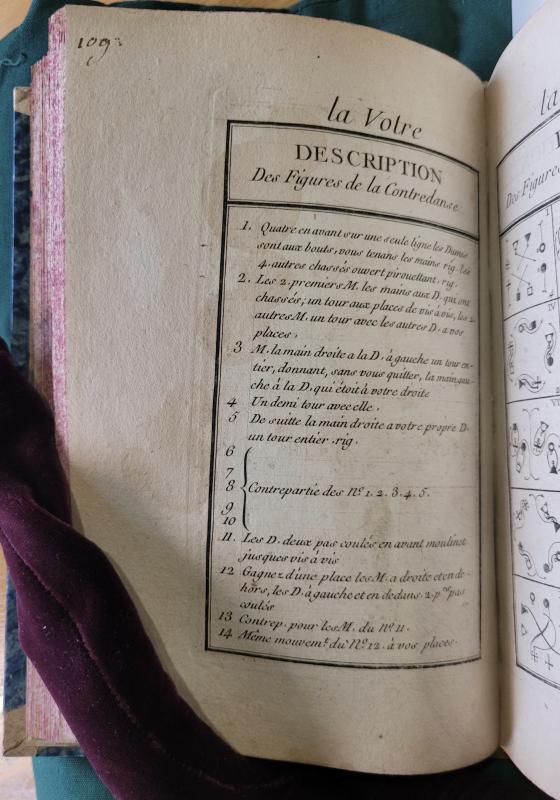 109
la Votre
DESCRIPTION
Des Figures de la Contredanse
1. Quatre en avant sur une seule ligne les Dames
sont aux bouts, vous tenans les mains rig. les
4. autres chassés ouvert pirouettant, rig.
2. Les 2. premiers M. les mains aux D. qui ont
chassés; un tour aux places de vis a vis, les 2.
autres M. un tour avec les autres D. a vos
places.
3 M. la main droite a la D. à gauche un tour en-
tier, donnant, sans vous quitter, la main gau-
che à la D. qui étoit à votre droite
4 Un demi tour avec elle.
5 De suitte la main droite a votre propre D.
un tour entier. rig.
6
7
8 Contrepartie des Nos. 1. 2. 3. 4. 5.
9
10
11. Les D. deux pas coulés en avant moulinet
jusques vis à vis
12 Gagnez d'une place les M. a droite et en de-
hors, les D. à gauche et en dedans. 2. prs pas
coulés
13 Contrep. pour les M. du No. 11.
14 Même mouvemt. du No. 12. à vos places.
la
Des Figures